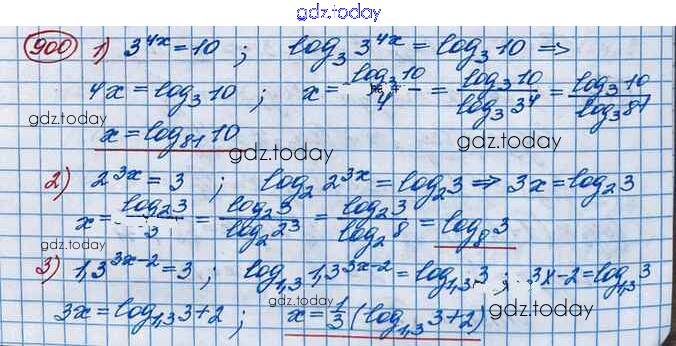 gdz.today
900 1) 3^{4x} = 10 ; log_3 3^{4x} = log_3 10 ⇒
4x = log_3 10 ; x = \frac{log_3 10}{4} = \frac{log_3 10}{log_3 3^4} = \frac{log_3 10}{log_3 81}
x = log_{81} 10
gdz.today gdz.today gdz.today
2) 2^{3x} = 3 ; log_2 2^{3x} = log_2 3 ⇒ 3x = log_2 3
x = \frac{log_2 3}{3} = \frac{log_2 3}{log_2 2^3} = \frac{log_2 3}{log_2 8} = log_8 3
gdz.today gdz.today
3) 1,3^{3x-2} = 3 ; log_{1,3} 1,3^{3x-2} = log_{1,3} 3 ; 3x-2 = log_{1,3} 3
3x = log_{1,3} 3 + 2 ; x = \frac{1}{3} (log_{1,3} 3 + 2)
gdz.today gdz.today